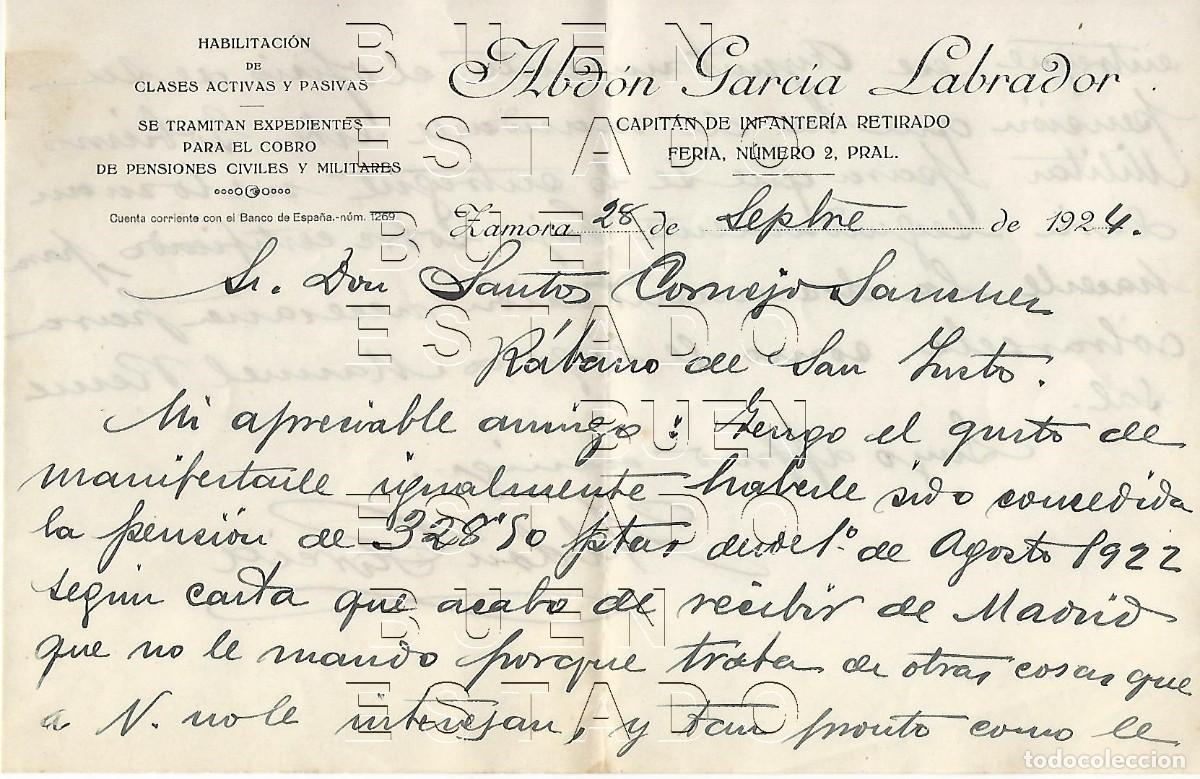 HABILITACIÓN
DE
CLASES ACTIVAS Y PASIVAS
SE TRAMITAN EXPEDIENTES
PARA EL COBRO
DE PENSIONES CIVILES Y MILITARES
Cuenta corriente con el Banco de España.-núm. 1269
Abdón García Labrador
CAPITÁN DE INFANTERÍA RETIRADO
FERIA, NÚMERO 2, PRAL.
Zamora 28 de Septbre de 1924.
Sr. Don Santos Cornejo Sanchez
Rábano de San Justo.
Mi apreciable amigo: Tengo el gusto de
manifestarle igualmente haberle sido concedida
la pensión de 328'50 ptas desde 1º de Agosto 1922
según carta que acabo de recibir de Madrid
que no le mando porque trata de otras cosas que
a V. no le interesan, y tan pronto como le
BUEN
ESTADO
BUEN
ESTADO
BUEN
ESTADO
BUEN
ESTADO
todocoleccion